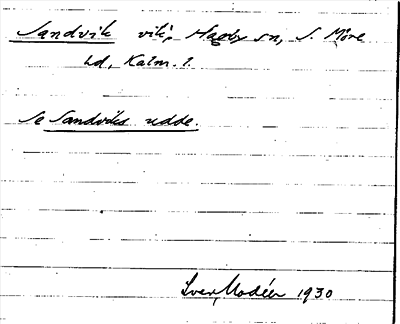 Sandvik vik, Hagby sn, S. Möre
hd, Kalm. l.
Se Sandviks udde.
Ivar Modéer 1930